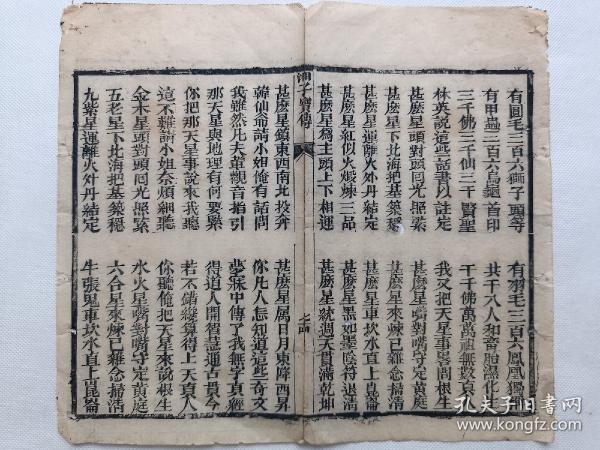 有圓毛三百六獅子頭等 有羽毛三百六鳳凰獨
有甲蟲三百六烏龜首印 共干不人和畜胎濕化生
三千佛三千仙三千賢聖 千千佛萬萬祖無數真
林英說這些話書以註定 我又把天星事畧問根生
甚麼星頭對頭囘光照緊 甚麼星嘴對嘴守定黃庭
甚麼星下北海把基築穩 甚麼星來煉已雜念掃清
甚麼星運離火外丹結定 甚麼星車坎水直上崑崙
甚麼星紅似火煅煉三品 甚麼星黑如墨陰符退清
甚麼星為主頭上下相連 甚麼星統週天貫滿乾坤
湘子寶傳
甚麼星鎮東西南北投奔 甚麼星属日月東降西昇
韓仙翁請小姐俺有話問 你凡人怎知道這些奇文
我雖然凡夫輩觀音指引 夢寐中傳了我無字真經
那天星與地理有何要緊 得道人開智慧通古貫今
你把那天星事說來我聽 若不錯纔算得上天真人
這不難請小姐奈煩細聽 你聽俺把天星來說根生
金木星頭對頭囘光照緊 水火星嘴對嘴守定黃庭
五老星下北海把基築穩 六合星來煉已雜念掃清
九紫星運離火外丹結定 牛張鬼車坎水直上崑崙
孔夫子旧书网
www.kongfz.com